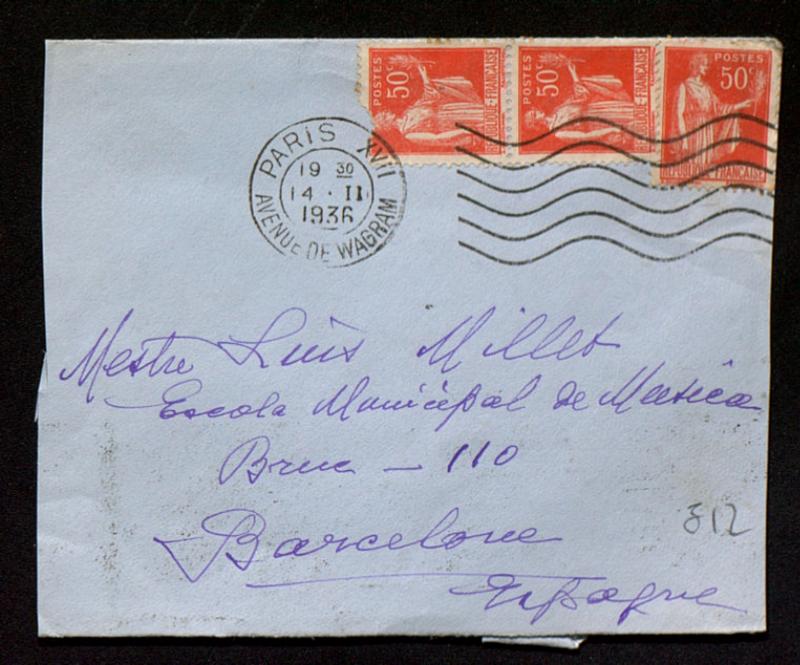 POSTES 50c REPUBLIQUE-FRANCAISE
POSTES 50c REPUBLIQUE-FRANCAISE
POSTES 50c REPUBLIQUE FRANCAISE
PARIS XVII
19 30
14 · II
1936
AVENUE DE WAGRAM
Mestre Lluis Millet
Escola Municipal de Musica
Bruc - 110
Barcelone
Espagne
312